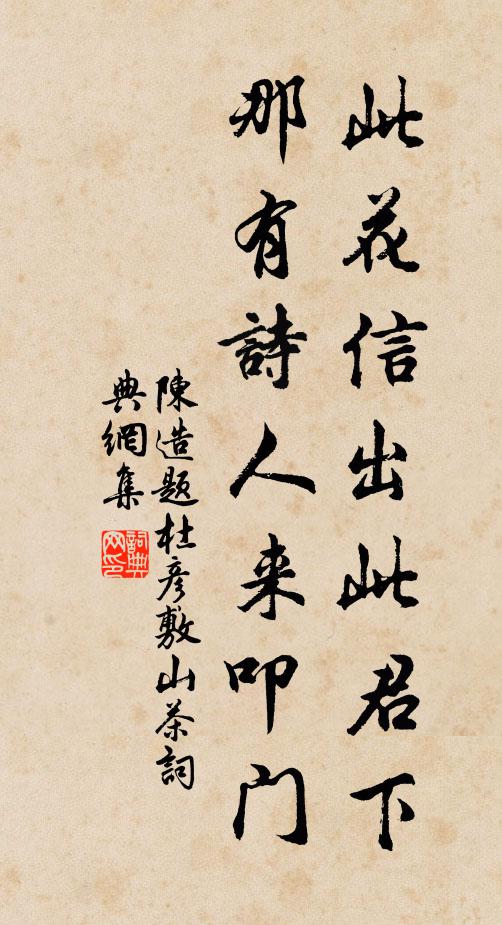 此花信出此君下
那有詩人来叩门
陳造題杜彦敷山茶詞
典網集
詞典
网印